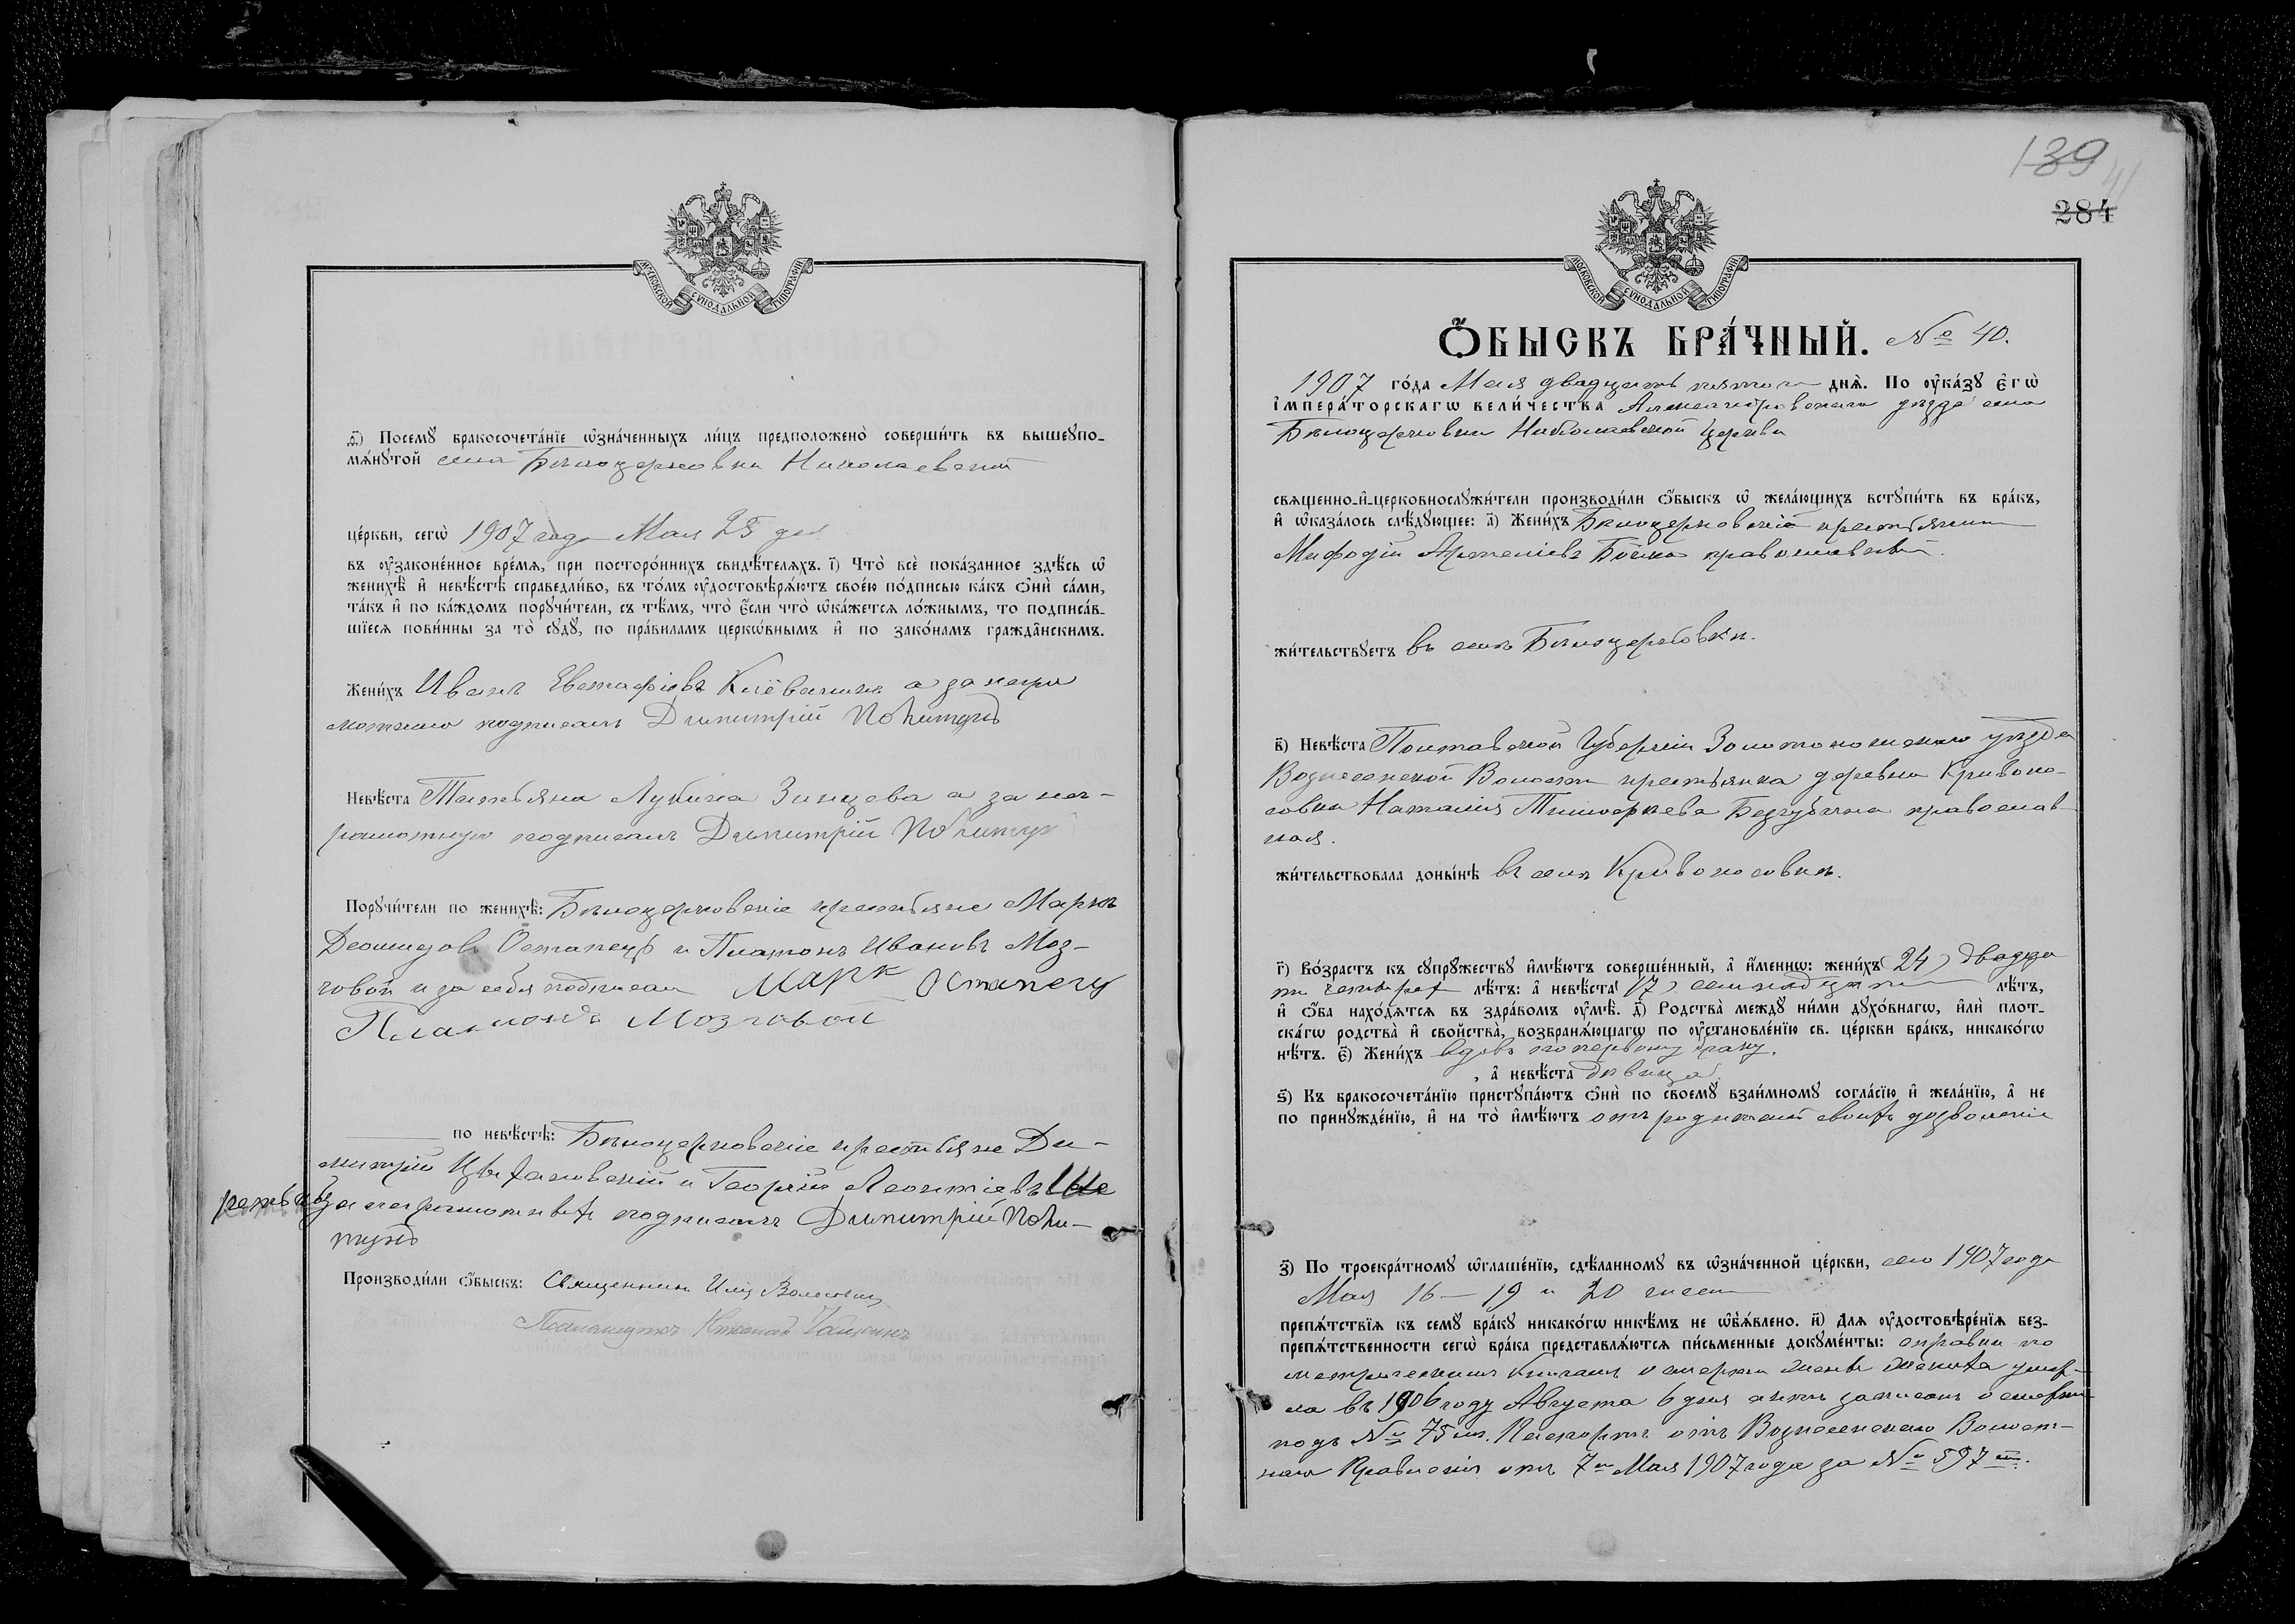 МОСКОВСКОЙ СУНОДАЛЬНОЙ ТИПОГРАФІИ
ѳ҃) Посемꙋ бракосочета́нїе ѡ҆зна́ченныхъ ли́цъ предположено̀ соверши́ть въ вышеꙋпо-
мѧ́нꙋтой села Бѣлоцерковки Николаевской
це́ркви, сегѡ̀ 1907 года Мая 25 дня
въ ᲂу҆законе́нное вре́мѧ, при посторо́ннихъ свидѣ́телѧхъ. і҃) Что̀ всѐ пока́занное здѣ́сь ѡ҆
женихѣ̀ и҆ невѣ́стѣ справедли́во, въ то́мъ ᲂу҆достовѣрѧ́ютъ свое́ю по́дписью ка́къ ѻ҆нѝ са́ми,
та́къ и҆ по ка́ждомъ порꙋчи́тели, съ тѣ́мъ, что̀ є҆́сли что̀ ѡ҆ка́жетсѧ ло́жнымъ, то подписа́в-
шїесѧ пови́нны за то̀ сꙋдꙋ̀, по пра́виламъ церкѡ́внымъ и҆ по зако́намъ гражда̑нскимъ.
Жени́хъ Иванъ Евстафіевъ а за негра
мотнаго подписалъ Димитрій
Невѣ́ста Татьяна Лукина Зинцева а за нег-
рамотную подписалъ Димитрій
Порꙋчи́тели по женихѣ̀: Бѣлоцерковскіе крестьяне Маркъ
Деомидовъ Остапецъ и Платонъ Ивановъ Моз-
говой и за себя подписали Марк Остапець
Платонъ Мозговой
по невѣ́стѣ: Бѣлоцерковскіе крестьяне Ди-
митрій и Георгій Леонтіевъ
за неграмотныхъ подписалъ Димитрій
Производи́ли ѻ҆́быскъ: Священникъ Илія
Псаломщикъ
139
41
284
МОСКОВСКОЙ СУНОДАЛЬНОЙ ТИПОГРАФІИ
Ѻ҆́БЫСКЪ БРА́ЧНЫЙ. № 40.
1907 го́да Мая двадцать пятаго днѧ̀. По ᲂу҆ка́зꙋ є҆гѡ̀
і҆мпера́торскагѡ вели́чества Александровскаго уѣзда села
Бѣлоцерковки Николаевской Церкви
свѧщенно-и҆-церковнослꙋжи́тели производи́ли ѻ҆́быскъ ѡ҆ жела́ющихъ встꙋпи́ть въ бра́къ,
и҆ ѡ҆каза́лось слѣ́дꙋющее: а҃) Жени́хъ Бѣлоцерковскій крестьянинъ
Мифодій Бойко православный.
жи́тельствꙋетъ въ селѣ Бѣлоцерковки.
в҃) Невѣ́ста Полтавской Губерніи Золотоношскаго уѣзда
Вознесенской Волости крестьянка деревни Кривоно-
совки Наталія Тимофеева православ-
ная.
жи́тельствовала доны́нѣ въ селѣ Кривоносовки.
г҃) Во́зрастъ къ сꙋпрꙋжествꙋ и҆мѣ́ютъ соверше́нный, а҆ и҆́меннѡ: жени́хъ (24) двадца
ти четырех лѣ́тъ: а҆ невѣ́ста (17) семнадцати лѣ́тъ,
и҆ ѻ҆́ба нахо́дѧтсѧ въ здра́вомъ ᲂу҆мѣ̀. д҃) Родства̀ междꙋ ни́ми дꙋхо́внагѡ, и҆лѝ плот-
ска́гѡ родства̀ и҆ сво́йства̀, возбранѧ́ющагѡ по ᲂу҆становле́нїю св. це́ркви бра́къ, никако́гѡ
нѣ́тъ. є҃) Жени́хъ вдовъ по первому браку,
, а҆ невѣ́ста дѣвица
ѕ҃) Къ бракосочета́нїю пристꙋпа́ютъ ѻ҆нѝ по своемꙋ̀ взаи́мномꙋ согла́сїю и҆ жела́нїю, а҆ не
по принꙋжде́нїю, и҆ на то̀ и҆мѣ́ютъ отъ родителей своихъ дозволеніе
з҃) По троекра́тномꙋ ѡ҆глаше́нїю, сдѣ́ланномꙋ въ ѡ҆зна́ченной це́ркви, сего 1907 года
Мая 16 – 19 и 20 чиселъ
препѧ́тствїѧ къ семꙋ̀ бра́кꙋ никако́гѡ никѣ́мъ не ѡ҆б̾ѧ́влено. и҃) Длѧ ᲂу҆достовѣре́нїѧ без-
препѧ́тственности сегѡ̀ бра́ка представлѧ́ютсѧ пи́сьменные докꙋме́нты: справки по
метрическимъ книгамъ о смерти жены жениха умер-
ла въ 1906 году Августа 6 дня актъ записанъ о смерти
подъ № 75 м. Паспортъ отъ Вознесенскаго Волост-
наго Правленія отъ 7го Мая 1907 года за № 597 м.